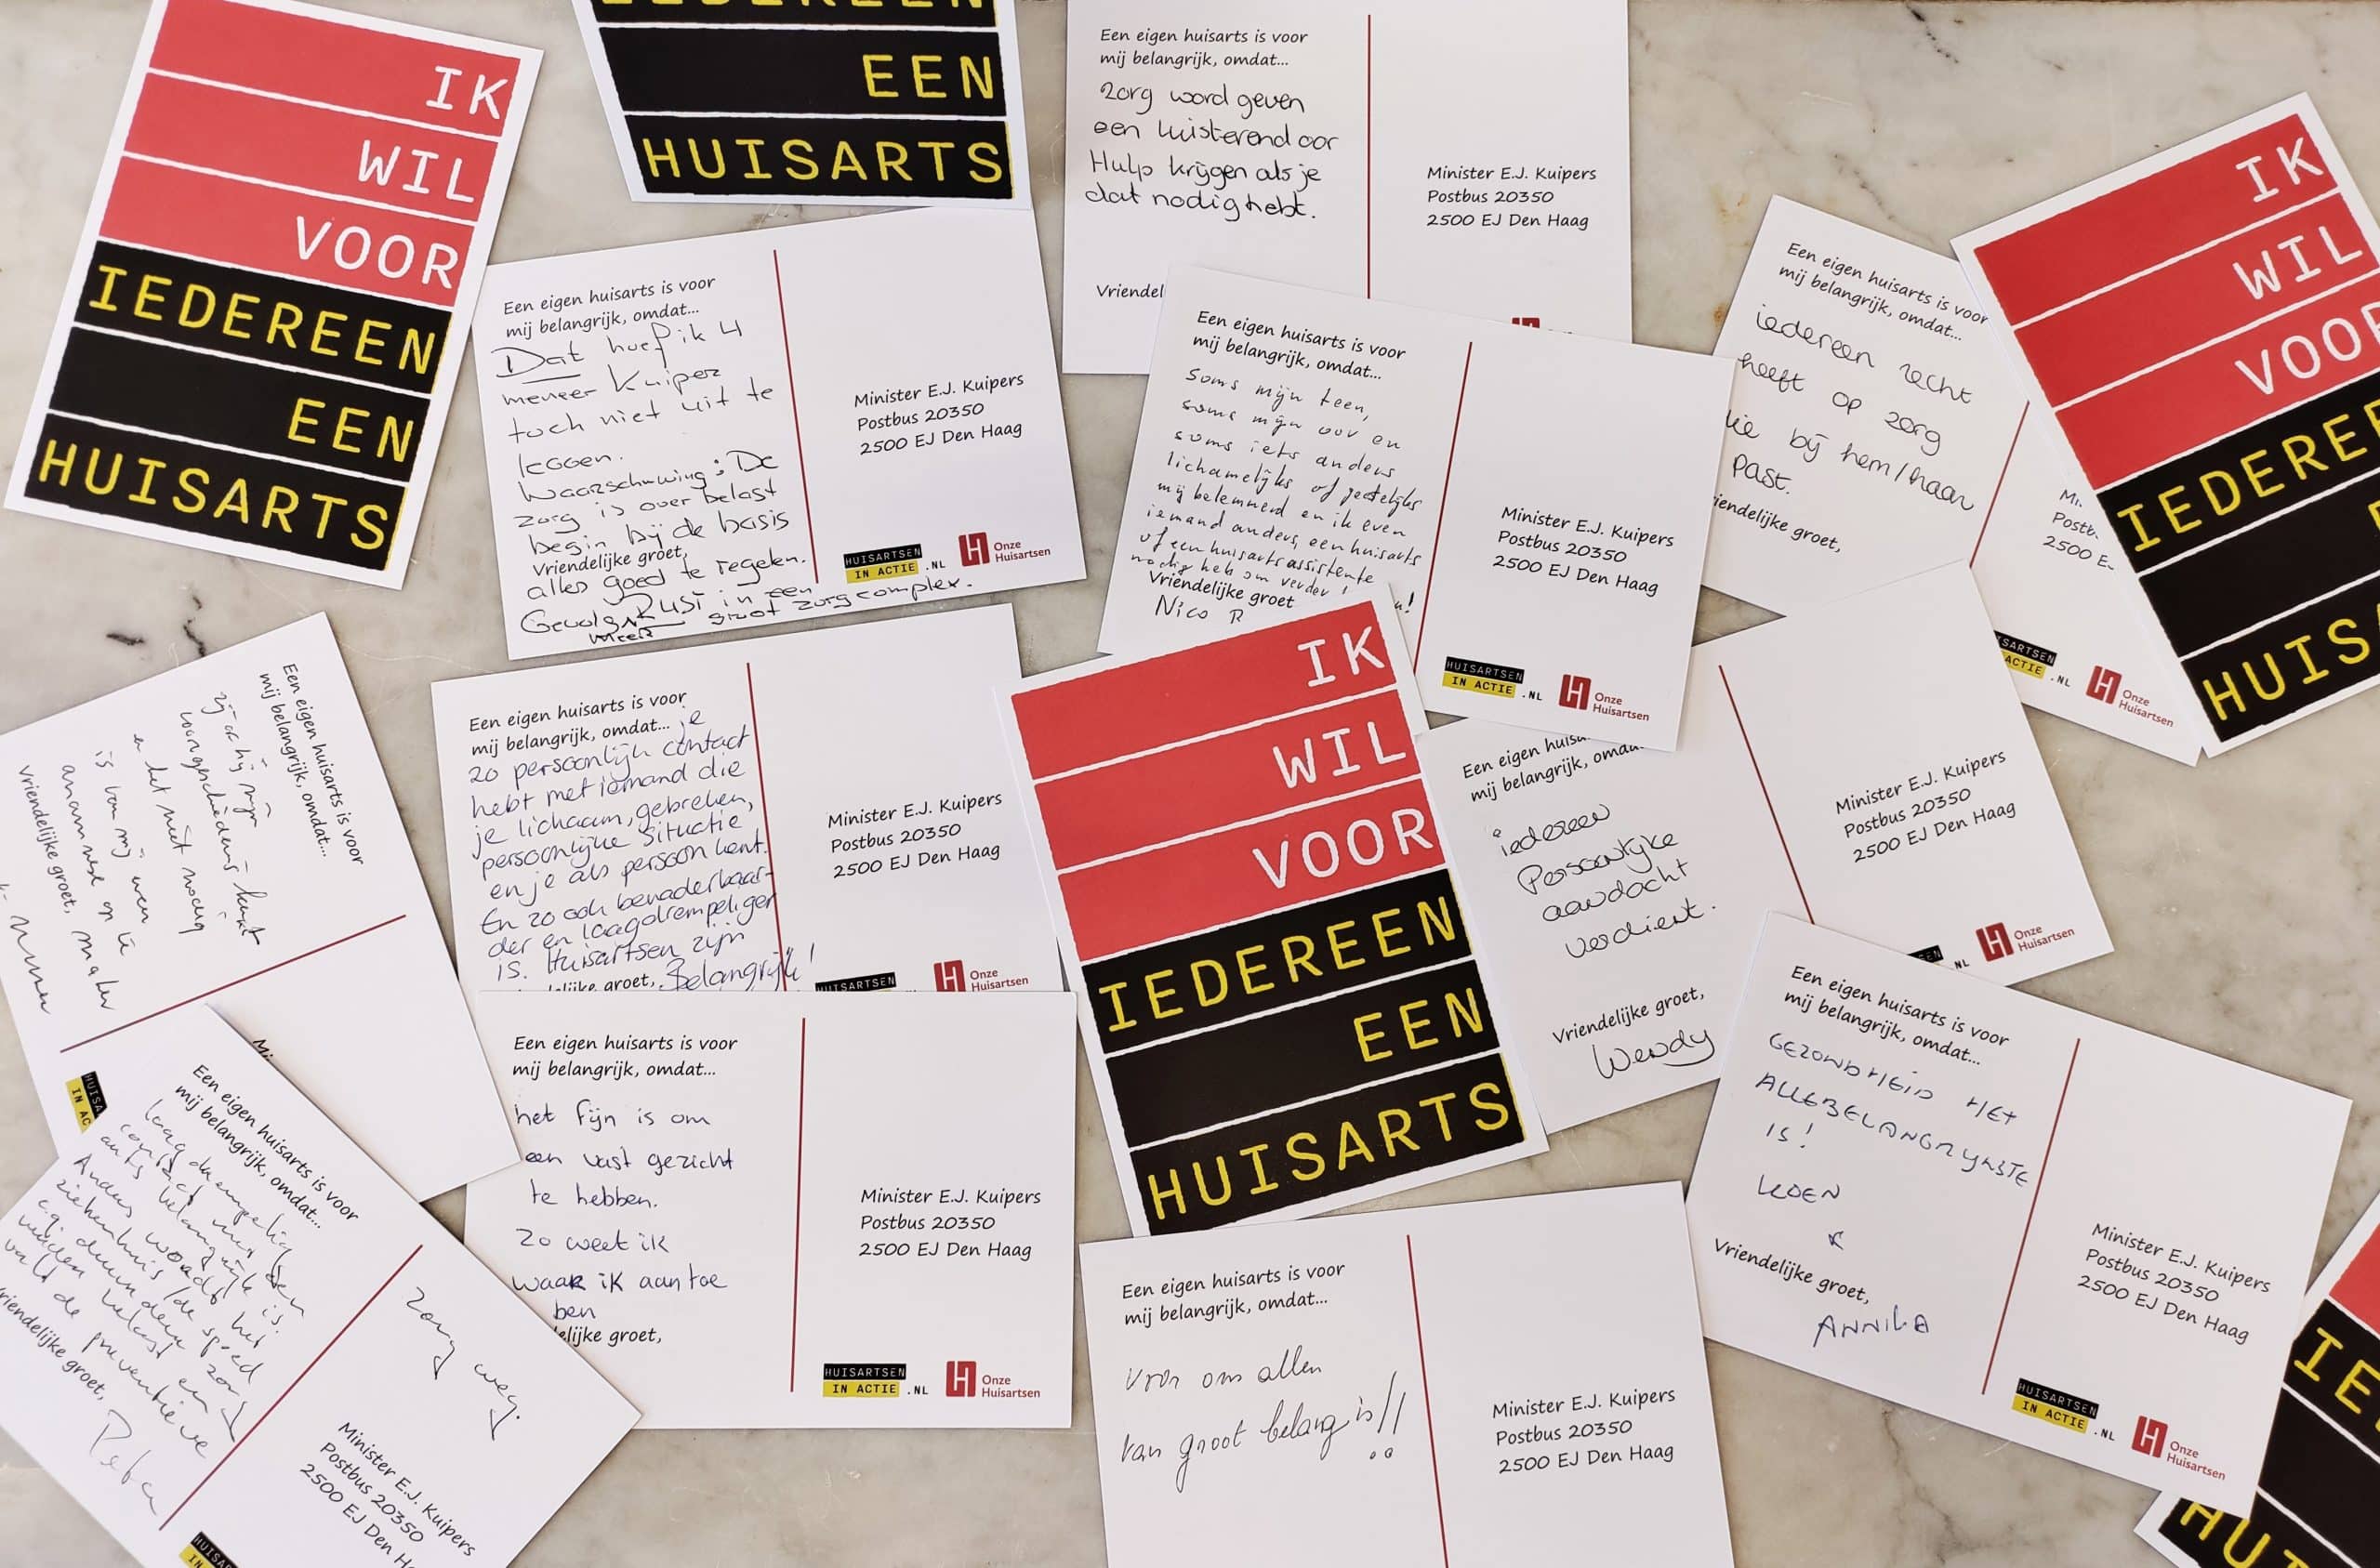 IK
WIL
VOOR
IEDEREEN
EEN
HUISARTS
EEN
HUISARTS
Een eigen huisarts is voor
mij belangrijk, omdat...
zorg word geven
een luisterend oor
Hulp krijgen als je
dat nodig hebt.
Vriendel
Minister E.J. Kuipers
Postbus 20350
2500 EJ Den Haag
IK
WIL
VOOR
HUIS
Een eigen huisarts is voor
mij belangrijk, omdat...
Dat hoef ik 4
meneer Kuiper
toch niet uit te
leggen.
Waarschuwing: De
zorg is over belast
begin bij de basis
Vriendelijke groet,
alles goed te regelen.
Gevolg: Rust in een
meer groot zorgcomplex.
Minister E.J. Kuipers
Postbus 20350
2500 EJ Den Haag
HUISARTSEN
IN ACTIE .NL
Onze
Huisartsen
Een eigen huisarts is voor
mij belangrijk, omdat...
Soms mijn teen,
soms mijn oor en
soms iets anders
lichamelijks of geestelijks
mij belemmerd en ik even
iemand anders, een huisarts
of een huisartsassistente
nodig heb om verder
Vriendelijke groet
Nico R
Minister E.J. Kuipers
Postbus 20350
2500 EJ Den Haag
HUISARTSEN
IN ACTIE .NL
Onze
Huisartsen
Een eigen huisarts is voor
mij belangrijk, omdat...
iedereen recht
heeft op zorg
die bij hem/haar
past.
iendelijke groet,
Postb
2500 E
ACTIE .NL
Onze
Huisartsen
Een eigen huisarts is voor
mij belangrijk, omdat...
zij of hij mijn
voorgeschiedenis kent
en het niet nodig
is om mij weer
anamnese op te
maken
Vriendelijke groet,
Een eigen huisarts is voor
mij belangrijk, omdat... je
zo persoonlijk contact
hebt met iemand die
je lichaam, gebreken,
persoonlijke situatie,
en je als persoon kent.
En zo ook benaderbaar-
der en laagdrempeliger
is. Huisartsen zijn
groet, Belangrijk!
Minister E.J. Kuipers
Postbus 20350
2500 EJ Den Haag
HUISARTSEN
Onze
Huisartsen
IK
WIL
VOOR
IEDEREEN
EEN
HUISARTS
Een eigen
mij belangrijk,
iedereen
Persoonlijke
aandacht
verdient.
Vriendelijke groet,
Wendy
Minister E.J. Kuipers
Postbus 20350
2500 EJ Den Haag
NL
Onze
Huisartsen
Een eigen huisarts is voor
mij belangrijk, omdat...
GEZONDHEID HET
ALLERBELANGRIJKSTE
IS!
KOEN
Vriendelijke groet,
ANNIKA
Minister E.J. Kuipers
Postbus 20350
2500 EJ Den Haag
HUISARTSEN
IN ACTIE .NL
Onze
Huisartsen
Een eigen huisarts is voor
mij belangrijk, omdat...
laagdrempelig
contact met een
arts belangrijk is.
Anders wordt het
ziekenhuis / de spoed
c.q. duurdere zorg
belast en
valt de preventieve
zorg weg.
Vriendelijke groet,
Peter
Minister E.J. Kuipers
Postbus 20350
2500 EJ Den
Een eigen huisarts is voor
mij belangrijk, omdat...
het fijn is om
een vast gezicht
te hebben.
Zo weet ik
waar ik aan toe
ben
elijke groet,
Minister E.J. Kuipers
Postbus 20350
2500 EJ Den Haag
HUISARTSEN
IN ACTIE .NL
Onze
Huisartsen
Een eigen huisarts is voor
mij belangrijk, omdat...
voor ons allen
van groot belang is!!
Minister E.J. Kuipers
Postbus 20350
2500 EJ Den Haag